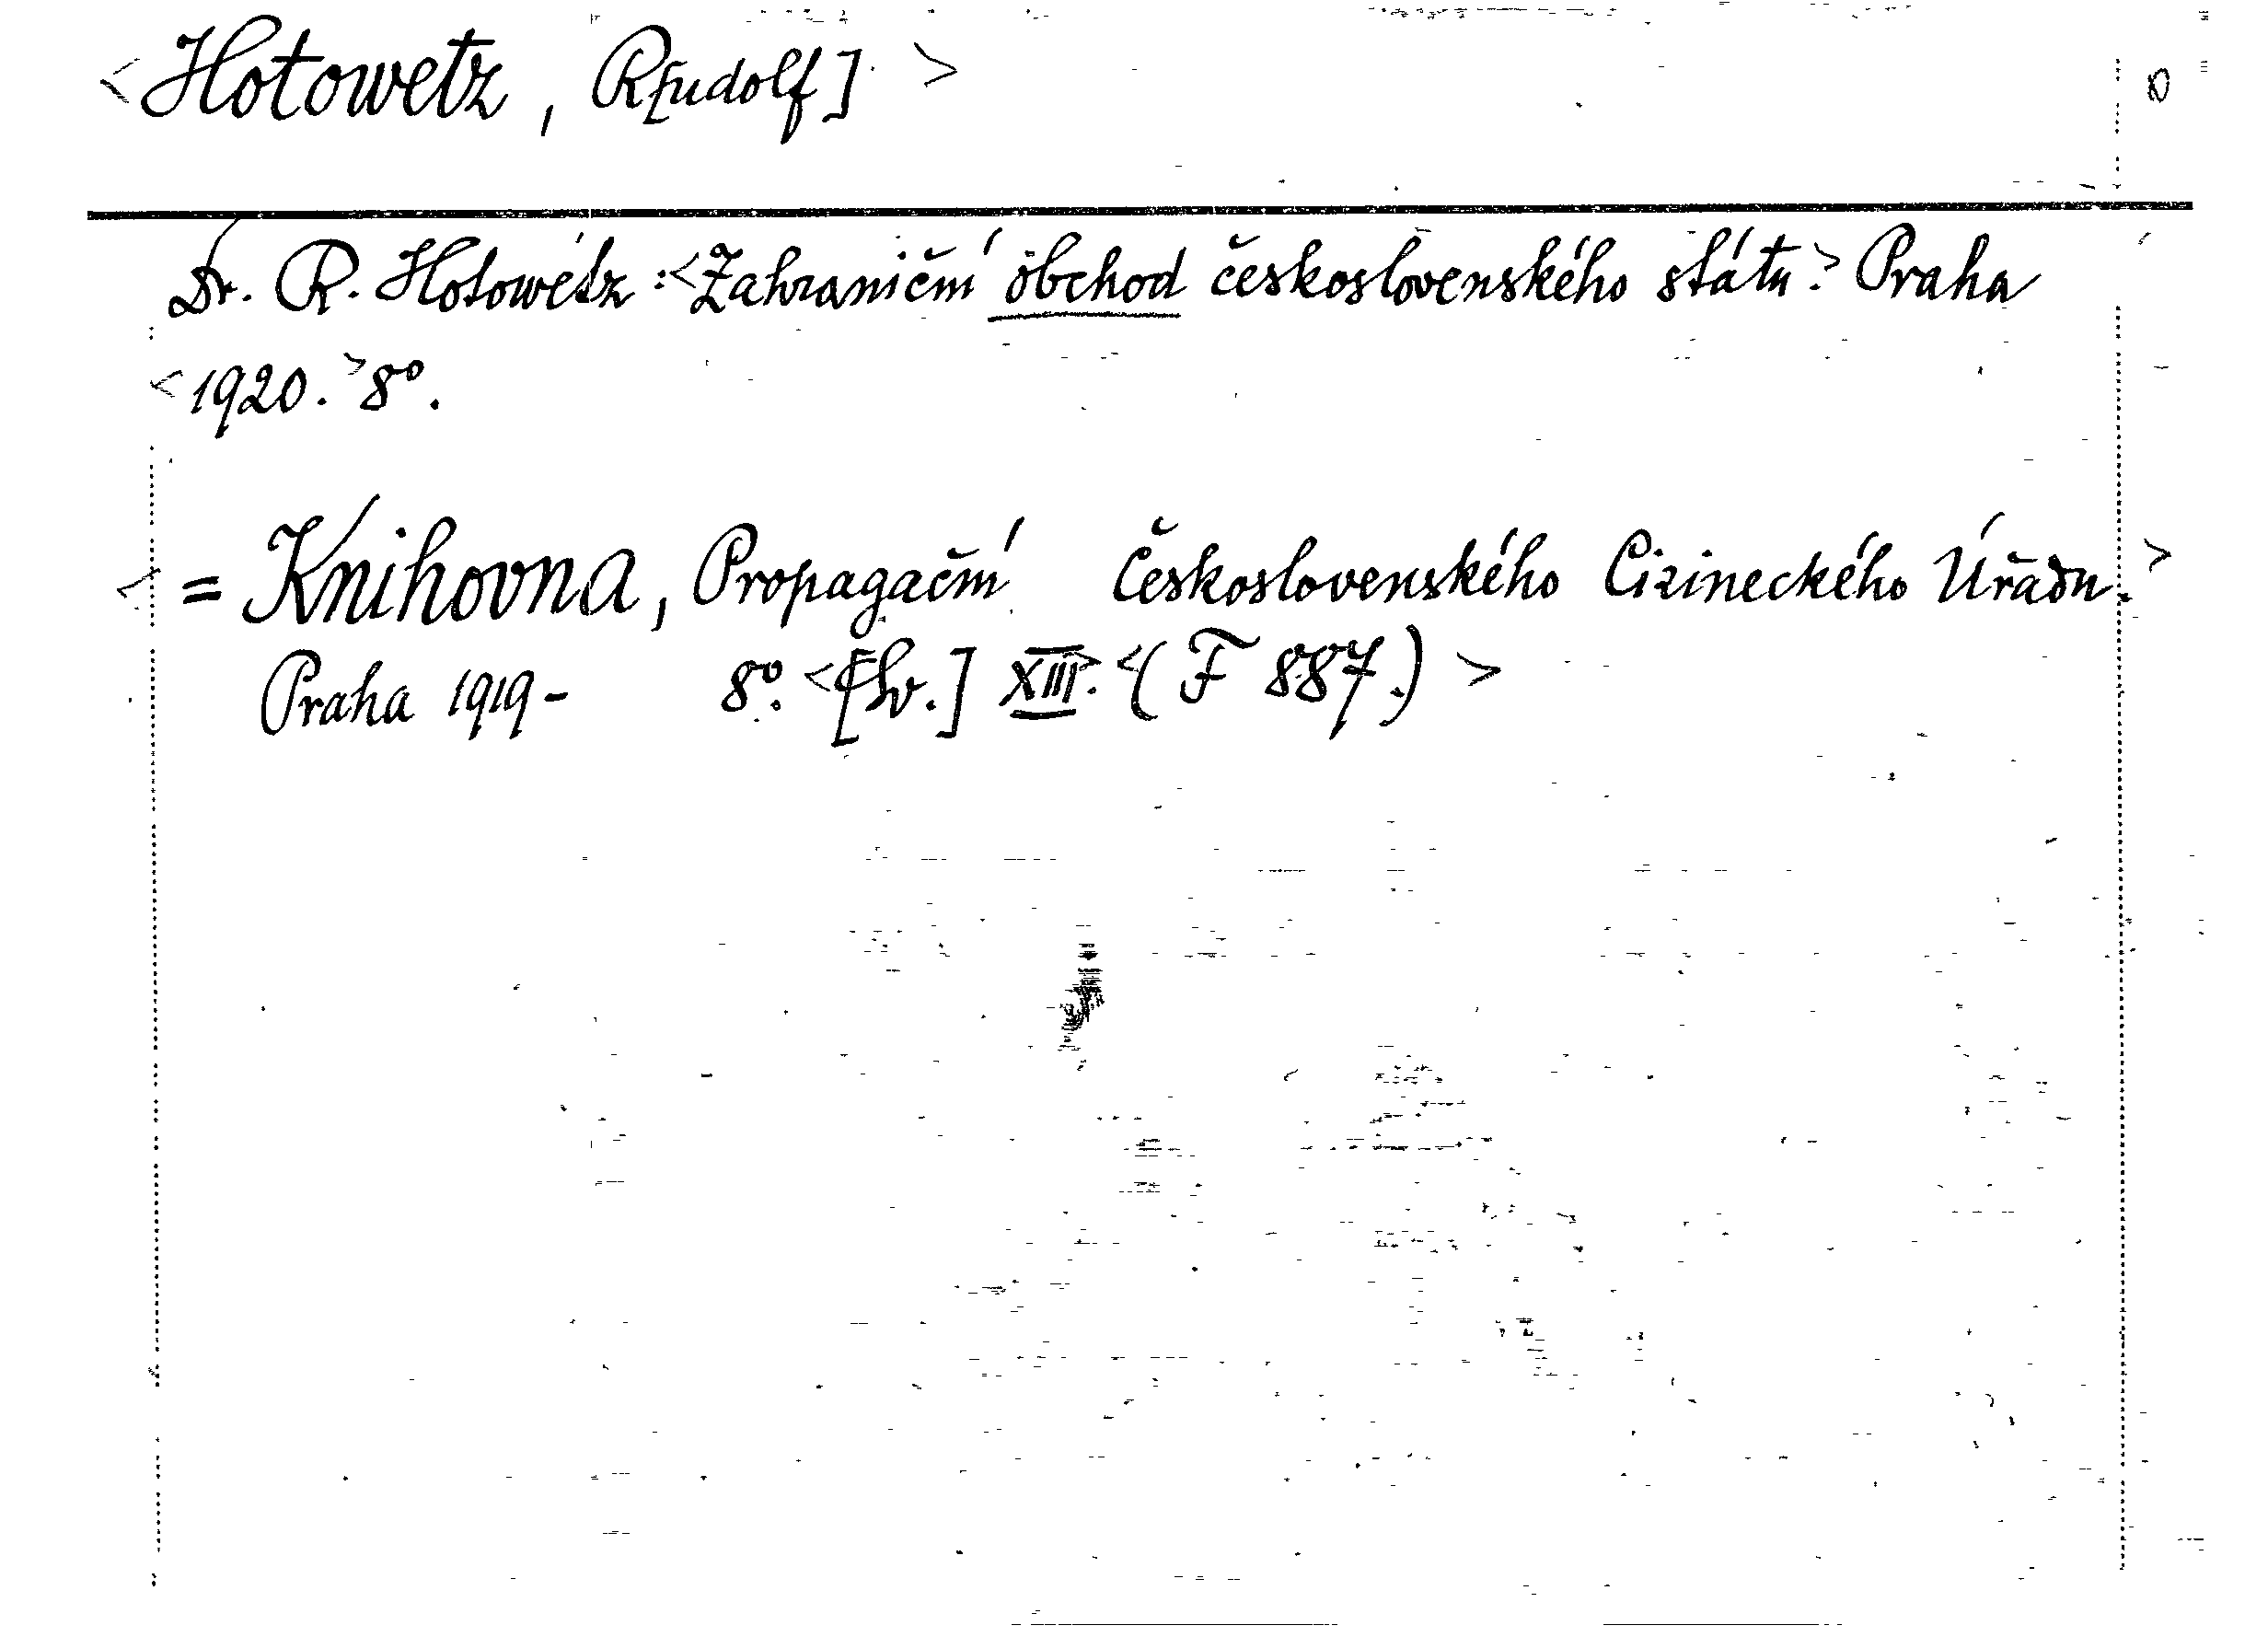 <Hotowetz, R[udolf]>
Dr. R. Hotowetz: <Zahraniční obchod československého státu.> Praha
<1920.> 8°.
<= Knihovna, Propagační Československého Cizineckého Úřadu.>
Praha 1919- 8°. <[Sv.] XIII.> <(F 887.)>